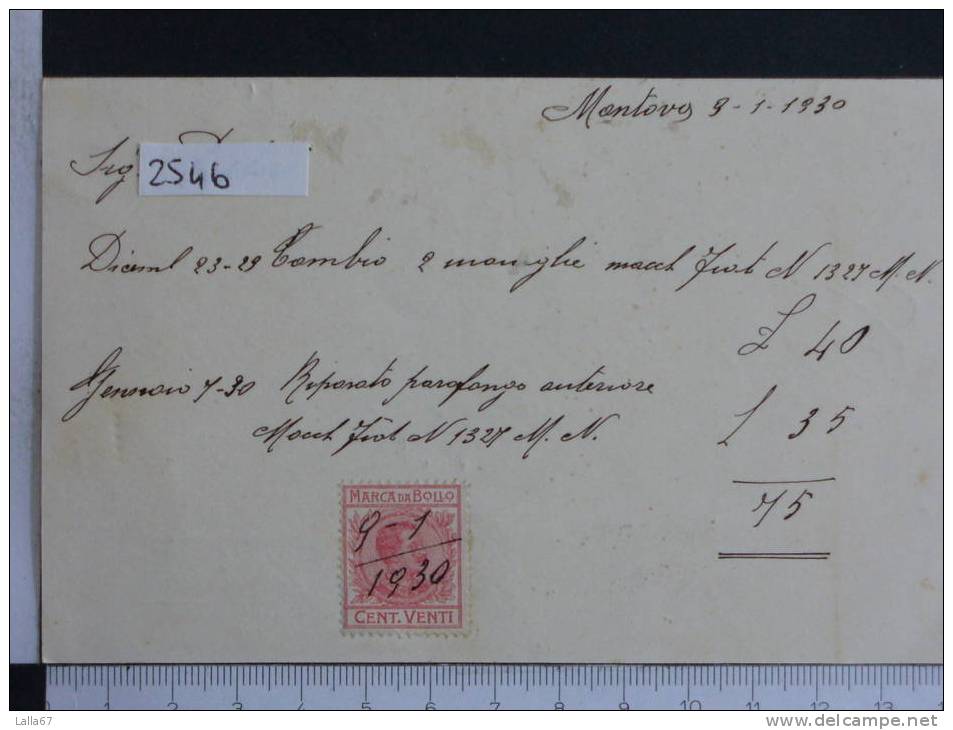 Mantova 9-1-1930
Sig.
2546
Diceml 23-29 Cambio 2 maniglie macch Fiat N 1327 M.N.
£ 40
Gennaio 7-30 Riparato parafango anteriore
Macch Fiat N 1327 M.N.
£ 35
75
MARCA DA BOLLO
9-1
1930
CENT. VENTI
0 1 2 3 4 5 6 7 8 9 10 11 12 13 1
Lalla67
www.delcampe.net